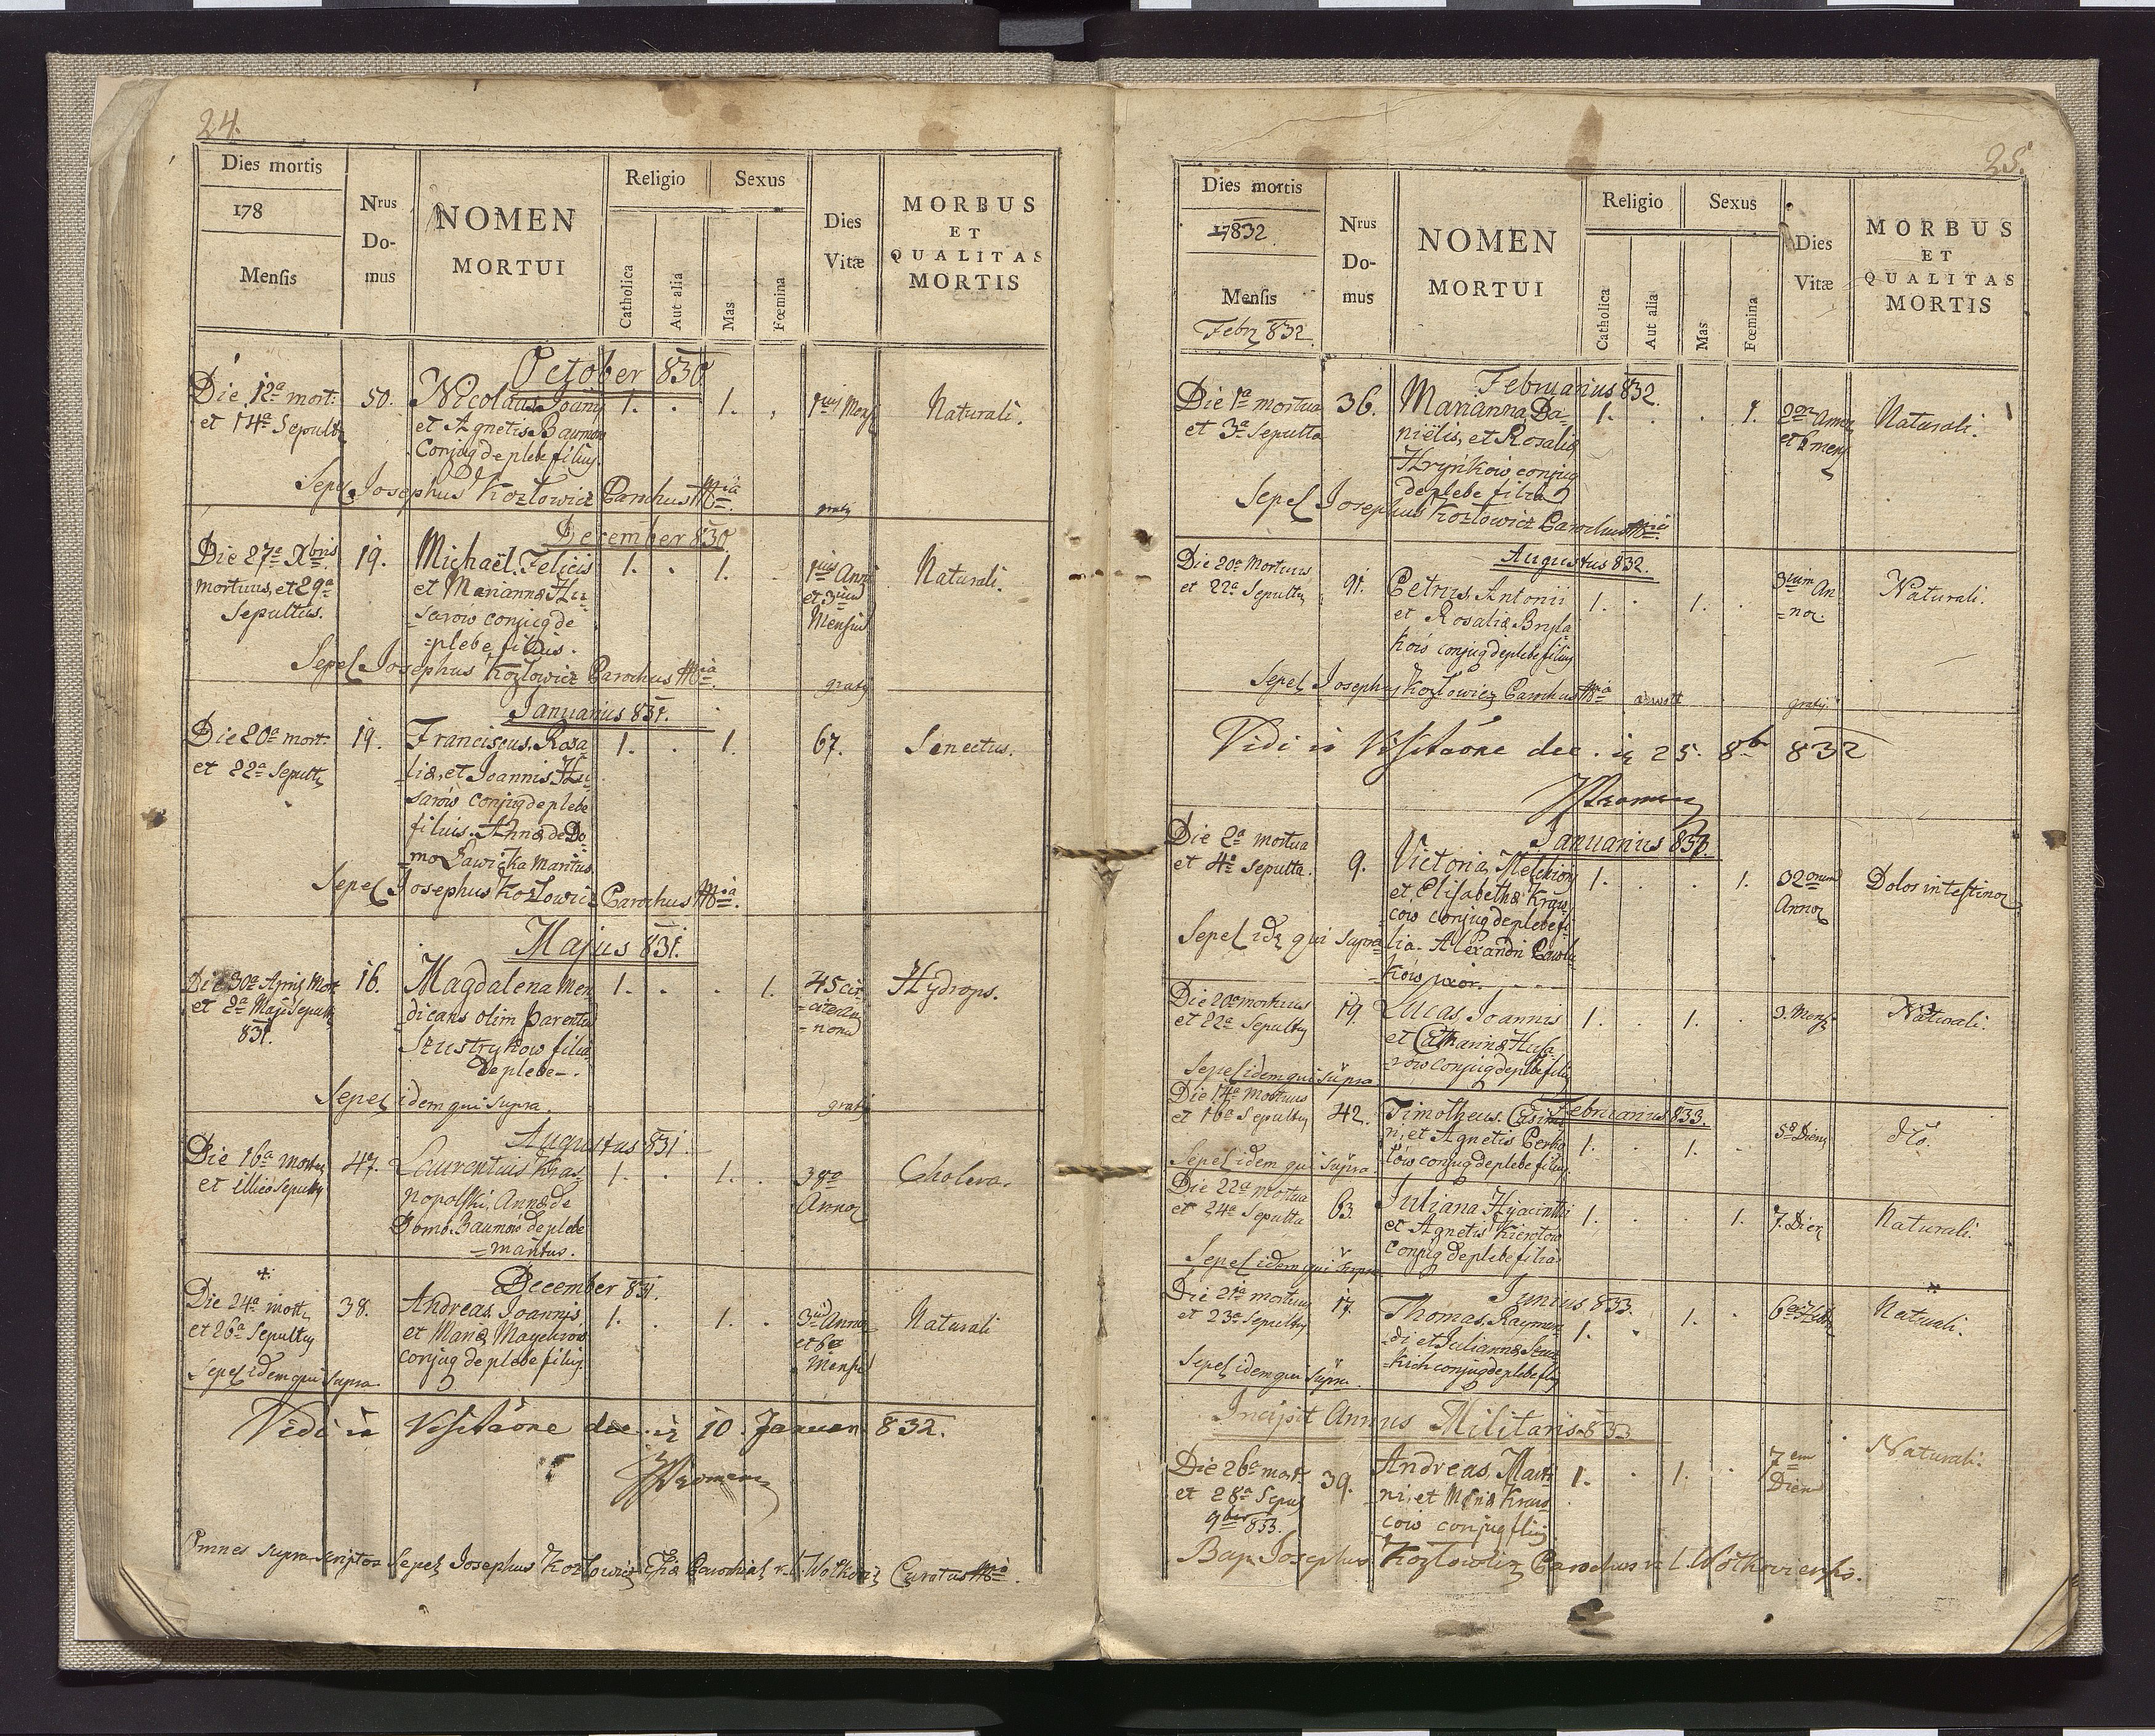 24.
Dies mortis
178
Mensis
Nrus
Do-
mus
NOMEN
MORTUI
Religio
Catholica
Aut alia
Sexus
Mas
Fœmina
Dies
Vitæ
MORBUS
ET
QUALITAS
MORTIS
October 830
Die 12a mort:
et 14a Sepult
50.
Nicolaus Joañis
et Agnetis Bauman
Conjug de plebe filius
1. . 1. .
1us Mens
Naturali.
Sepel Josephus Kozłowicz Parochus
gratis
December 830
Die 27a Xbris
mortuus, et 29a
Sepultus.
19.
Michaël, Felicis
et Mariannæ Hu-
sarow conjug de
=plebe filius.
1. . 1. .
1ius Anni
et 3um
Mensium
Naturali.
Sepel Josephus Kozłowicz Parochus
gratis
Januarius 831.
Die 20a mort:
et 22a Sepult
19.
Franciscus, Rosa
liæ, et Joannis Hu-
sarow conjug de plebe
filius. Annæ de Do-
=mo Sawicka maritus
1. . 1.
67.
Senectus.
Sepel Josephus Kozłowicz Parochus
Majus 831.
Die 30a Aprilis Mort
et 2a Maji Sepult
831.
16.
Magdalena Men
dicans olim parentu
Szustrykow filia
de plebe-.
1. . . 1.
45 cir-
citer An-
norum
Hydrops.
Sepel idem qui supra.
gratis
Augustus 831
Die 16a Mortus
et illico Sepultus
47.
Laurentius Kras-
nopolski, Annæ de
Domo Baumow de plebe
=maritus.
1. . 1. .
38a
Annor
Cholera.
December 831.
Die 24a mort
et 26a Sepultus
38.
Andreas, Joannis
et Mariæ Maychrow
conjug de plebe filius
1. . 1. .
3um Annor
et 6a
Mensium
Naturali
Sepel idem qui supra
Vidi in Visitaône dec. in 10 Januar 832.
Omnes supra scriptos Sepel Josephus Kozłowicz Parochial r. l. Curatus
25.
Dies mortis
17832
Mensis
Febr 832.
Nrus
Do-
mus
NOMEN
MORTUI
Religio
Catholica
Aut alia
Sexus
Mas
Fœmina
Dies
Vitæ
MORBUS
ET
QUALITAS
MORTIS
Februarius 832.
Die 1a mortua
et 3a Sepulta
36.
Marianna, Da-
niëlis, et Rosaliæ
Hryńkow conjug
de plebe filia
1. . . 1.
2or Annor
et 6 mens
Naturali.
Sepel Josephus Kozłowicz Parochus
Augustus 832.
Die 20a Mortuus
et 22a Sepultus
91.
Petrus, Antonii
et Rosaliæ Bryła-
kois conjug de plebe filius
1. . 1. .
3ium An-
=nor
Naturali.
Sepel Josephus Kozłowicz Parochus
gratis
Vidi in Visitaône dec. in 25. 8br 832
Januarius 833.
Die 2a mortua
et 4a Sepulta.
9.
Victoria, Melchioris
et Elisabethæ Kraw-
cow conjug de plebe fi-
lia. Alexandri
kow uxor.
1. . . 1.
32orum
Annor
Dolor intestinor
Sepel idem qui supra
Die 20a mortuus
et 22a Sepultus
19.
Lucas, Joannis
et Catharinæ Husa-
row conjug de plebe filius
1. . 1. .
3. Mens
Naturali.
Sepel idem qui supra
Februarius 833.
Die 14a Mortuus
et 16a Sepultus
42.
Timotheus, Casimi-
ri, et Agnetis Gerba
low conjug de plebe filius
1. . 1. .
58 Dier
dto.
Sepel idem qui supra
Die 22a mortua
et 24a Sepulta
63.
Juliana, Hyacinthi
et Agnetis Kierotow
Conjug de plebe filia
1. . . 1.
7. Dier
Naturali.
Sepel idem qui supra
Junius 833.
Die 21a mortuus
et 23a Sepultus
17.
Thomas, Raymun-
di et Juliannæ
-kich conjug de plebe fili
1. . 1. .
Naturali.
Sepel idem qui supra
Incipit Annus Militaris 833
Die 26a mort
et 28a Sepul
9bris 833.
39.
Andreas, Marti-
ni, et Mariæ Kraw
cow conjug filius
1. . 1. .
7em
Dierum
Naturali.
Bap Josephus Kozłowicz Parochus r. l. Wołkoviensis.